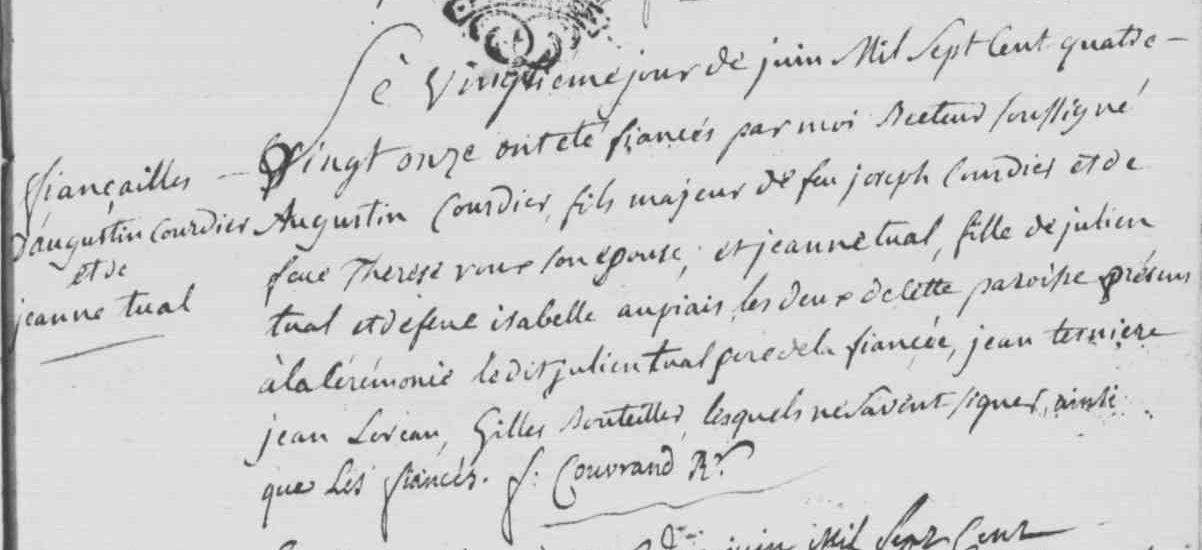 Le Vingtieme jour de juin Mil Sept Cent quatre-
Vingt onze ont été fiancés par moi Recteur soussigné
fiançailles
d'augustin Courdier
et de
jeanne tual
Augustin Courdier, fils majeur de feu joseph Courdier et de
feue Therese roux son epouse; et jeanne tual, fille de julien
tual et de feue isabelle aupiais, les deux de cette paroisse présens
à la Cérémonie ledit julien tual pere de la fiancée, jean terniere
jean Loreau, Gilles Bouteiller, lesquels ne savent signer, ainsi
que Les fiancés. f: Couvrand Rr.
juin Mil Sept Cent